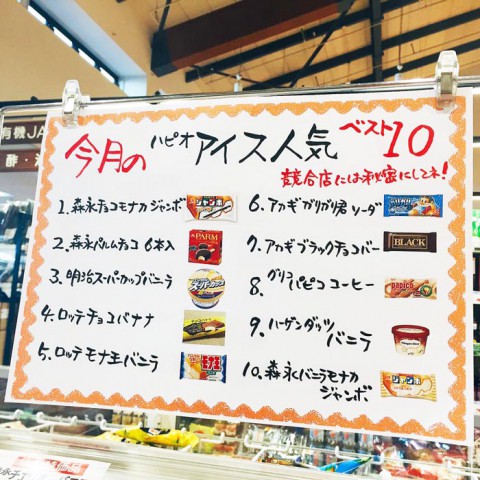 有機JA
酢・
今月の ハピオ アイス人気 ベスト10
競合店には秘密にしてネ!
1. 森永チョコモナカジャンボ
2. 森永パルムチョコ 6本入
3. 明治スーパーカップバニラ
4. ロッテチョコバナナ
5. ロッテモナ王バニラ
6. アカギガリガリ君ソーダ
7. アカギブラックチョコバー
8. グリコパピコ コーヒー
9. ハーゲンダッツ
バニラ
10. 森永バニラモナカ
ジャンボ
ジャンボ
PARM
スーパーカップ
モナ王
BLACK
papico
ジャンボ